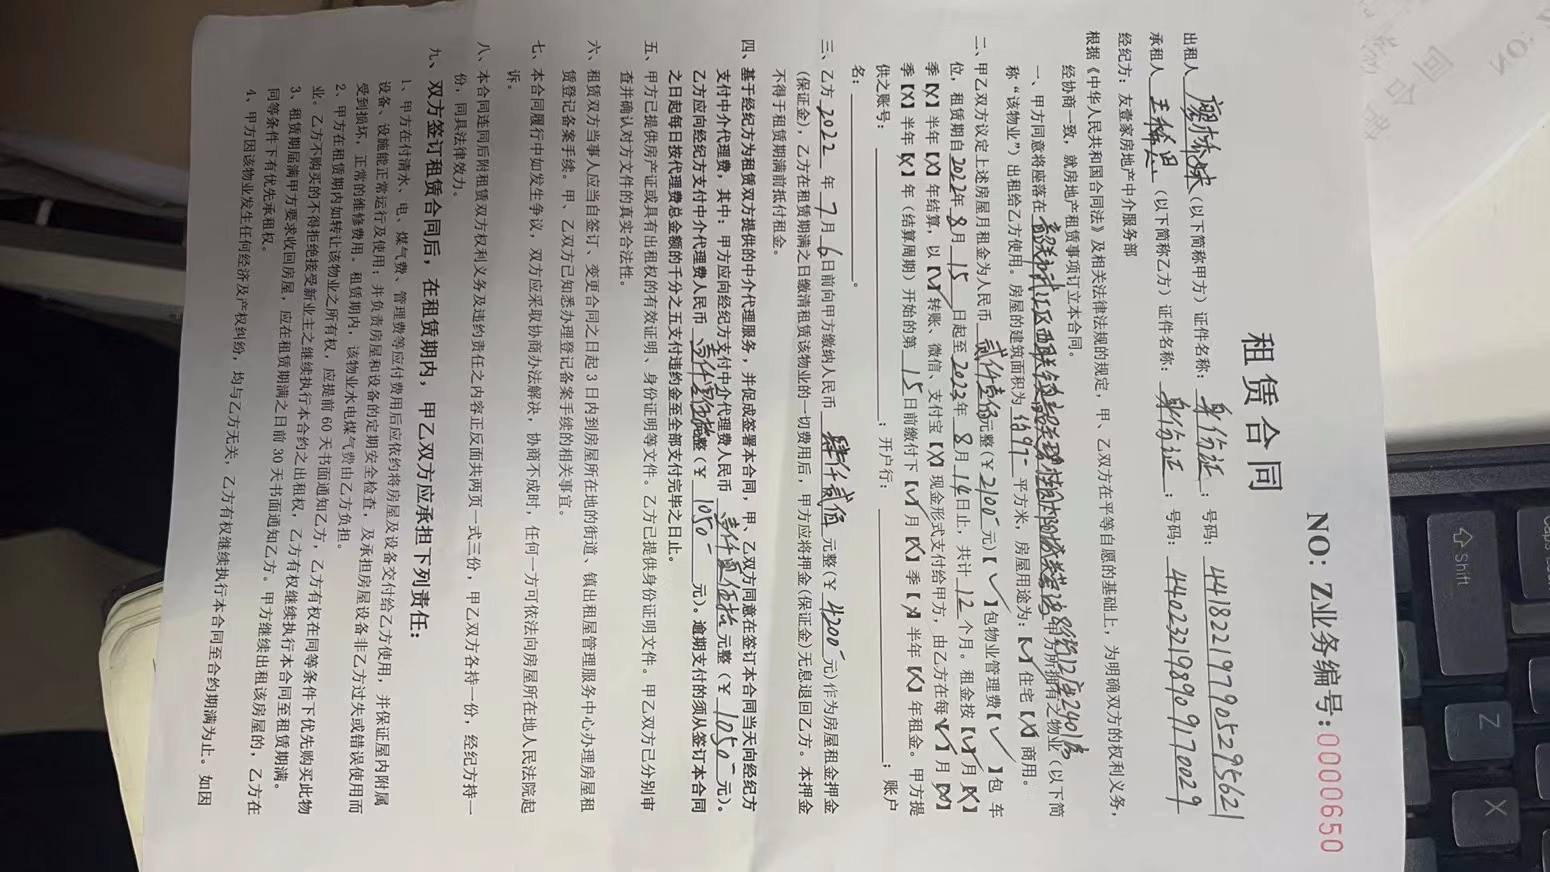 NO: Z业务编号:0000650
租 赁 合 同
出租人 （以下简称甲方）证件名称： 身份证 ；号码： 441822197905295621
承租人 王 （以下简称乙方）证件名称： 身份证 ；号码： 440231989091 70029
经纪方：友壹家房地产中介服务部
根据《中华人民共和国合同法》及相关法律法规的规定，甲、乙双方在平等自愿的基础上，为明确双方的权利义务，
经协商一致，就房地产租赁事项订立本合同。
一、甲方同意将座落在 12座2401房 甲方所拥有之物业（以下简
称“该物业”）出租给乙方使用。房屋的建筑面积为 约97 平方米，房屋用途为：【✓】住宅【X】商用。
二、甲乙双方议定上述房屋月租金为人民币 贰仟壹佰元整（￥2100-元）【✓】包物业管理费【✓】包 车
位，租赁期自2022年8月15日起至2023年8月14日止，共计12个月。租金按【✓】月【X】
季【X】半年【X】年结算，以【✓】转账、微信、支付宝【X】现金形式支付给甲方，由乙方在每【✓】月【X】
季【X】半年【X】年（结算周期）开始的第15日前缴付下【✓】月【X】季【X】半年【X】年租金。甲方提
供之账号： ；开户行： ；账户
名： 。
三、乙方2022年7月6日前向甲方缴纳人民币 肆仟贰佰 元整（￥4200-元）作为房屋租金押金
（保证金），乙方在租赁期满之日缴清租赁该物业的一切费用后，甲方应将押金（保证金）无息退回乙方。本押金
不得于租赁期满前抵付租金。
四、基于经纪方为租赁双方提供的中介代理服务，并促成签署本合同，甲、乙双方同意在签订本合同当天向经纪方
支付中介代理费，其中：甲方应向经纪方支付中介代理费人民币 壹仟零伍拾 元整（￥1050-元）。
乙方应向经纪方支付中介代理费人民币 壹仟零伍拾整（￥1050-元）。逾期支付的须从签订本合同
之日起每日按代理费总金额的千分之五支付违约金至全部支付完毕之日止。
五、甲方已提供房产证或具有出租权的有效证明、身份证明等文件。乙方已提供身份证明文件。甲乙双方已分别审
查并确认对方文件的真实合法性。
六、租赁双方当事人应当自签订、变更合同之日起3日内到房屋所在地的街道、镇出租屋管理服务中心办理房屋租
赁登记备案手续。甲、乙双方已知悉办理登记备案手续的相关事宜。
七、本合同履行中如发生争议，双方应采取协商办法解决，协商不成时，任何一方可依法向房屋所在地人民法院起
诉。
八、本合同连同后附租赁双方权利义务及违约责任之内容正反面共两页一式三份，甲乙双方各持一份，经纪方持一
份，同具法律效力。
九、双方签订租赁合同后，在租赁期内，甲乙双方应承担下列责任：
1、甲方在付清水、电、煤气费、管理费等应付费用后应依约将房屋及设备交付给乙方使用，并保证屋内附属
设备、设施能正常运行及使用；并负责房屋和设备的定期安全检查，及承担房屋设备非乙方过失或错误使用而
受到损坏，正常的维修费用。租赁期内，该物业水电煤气费由乙方负担。
2、甲方在租赁期内如转让该物业之所有权，应提前60天书面通知乙方，乙方有权在同等条件下优先购买此物
业。乙方不购买的不得拒绝接受新业主之继续执行本合约之出租权，乙方有权继续执行本合同至租赁期满。
3、租赁期届满甲方要求收回房屋，应在租赁期满之日前30天书面通知乙方。甲方继续出租该房屋的，乙方在
同等条件下有优先承租权。
4、甲方因该物业发生任何经济及产权纠纷，均与乙方无关，乙方有权继续执行本合同至合约期满为止。如因
Shift
Z
X